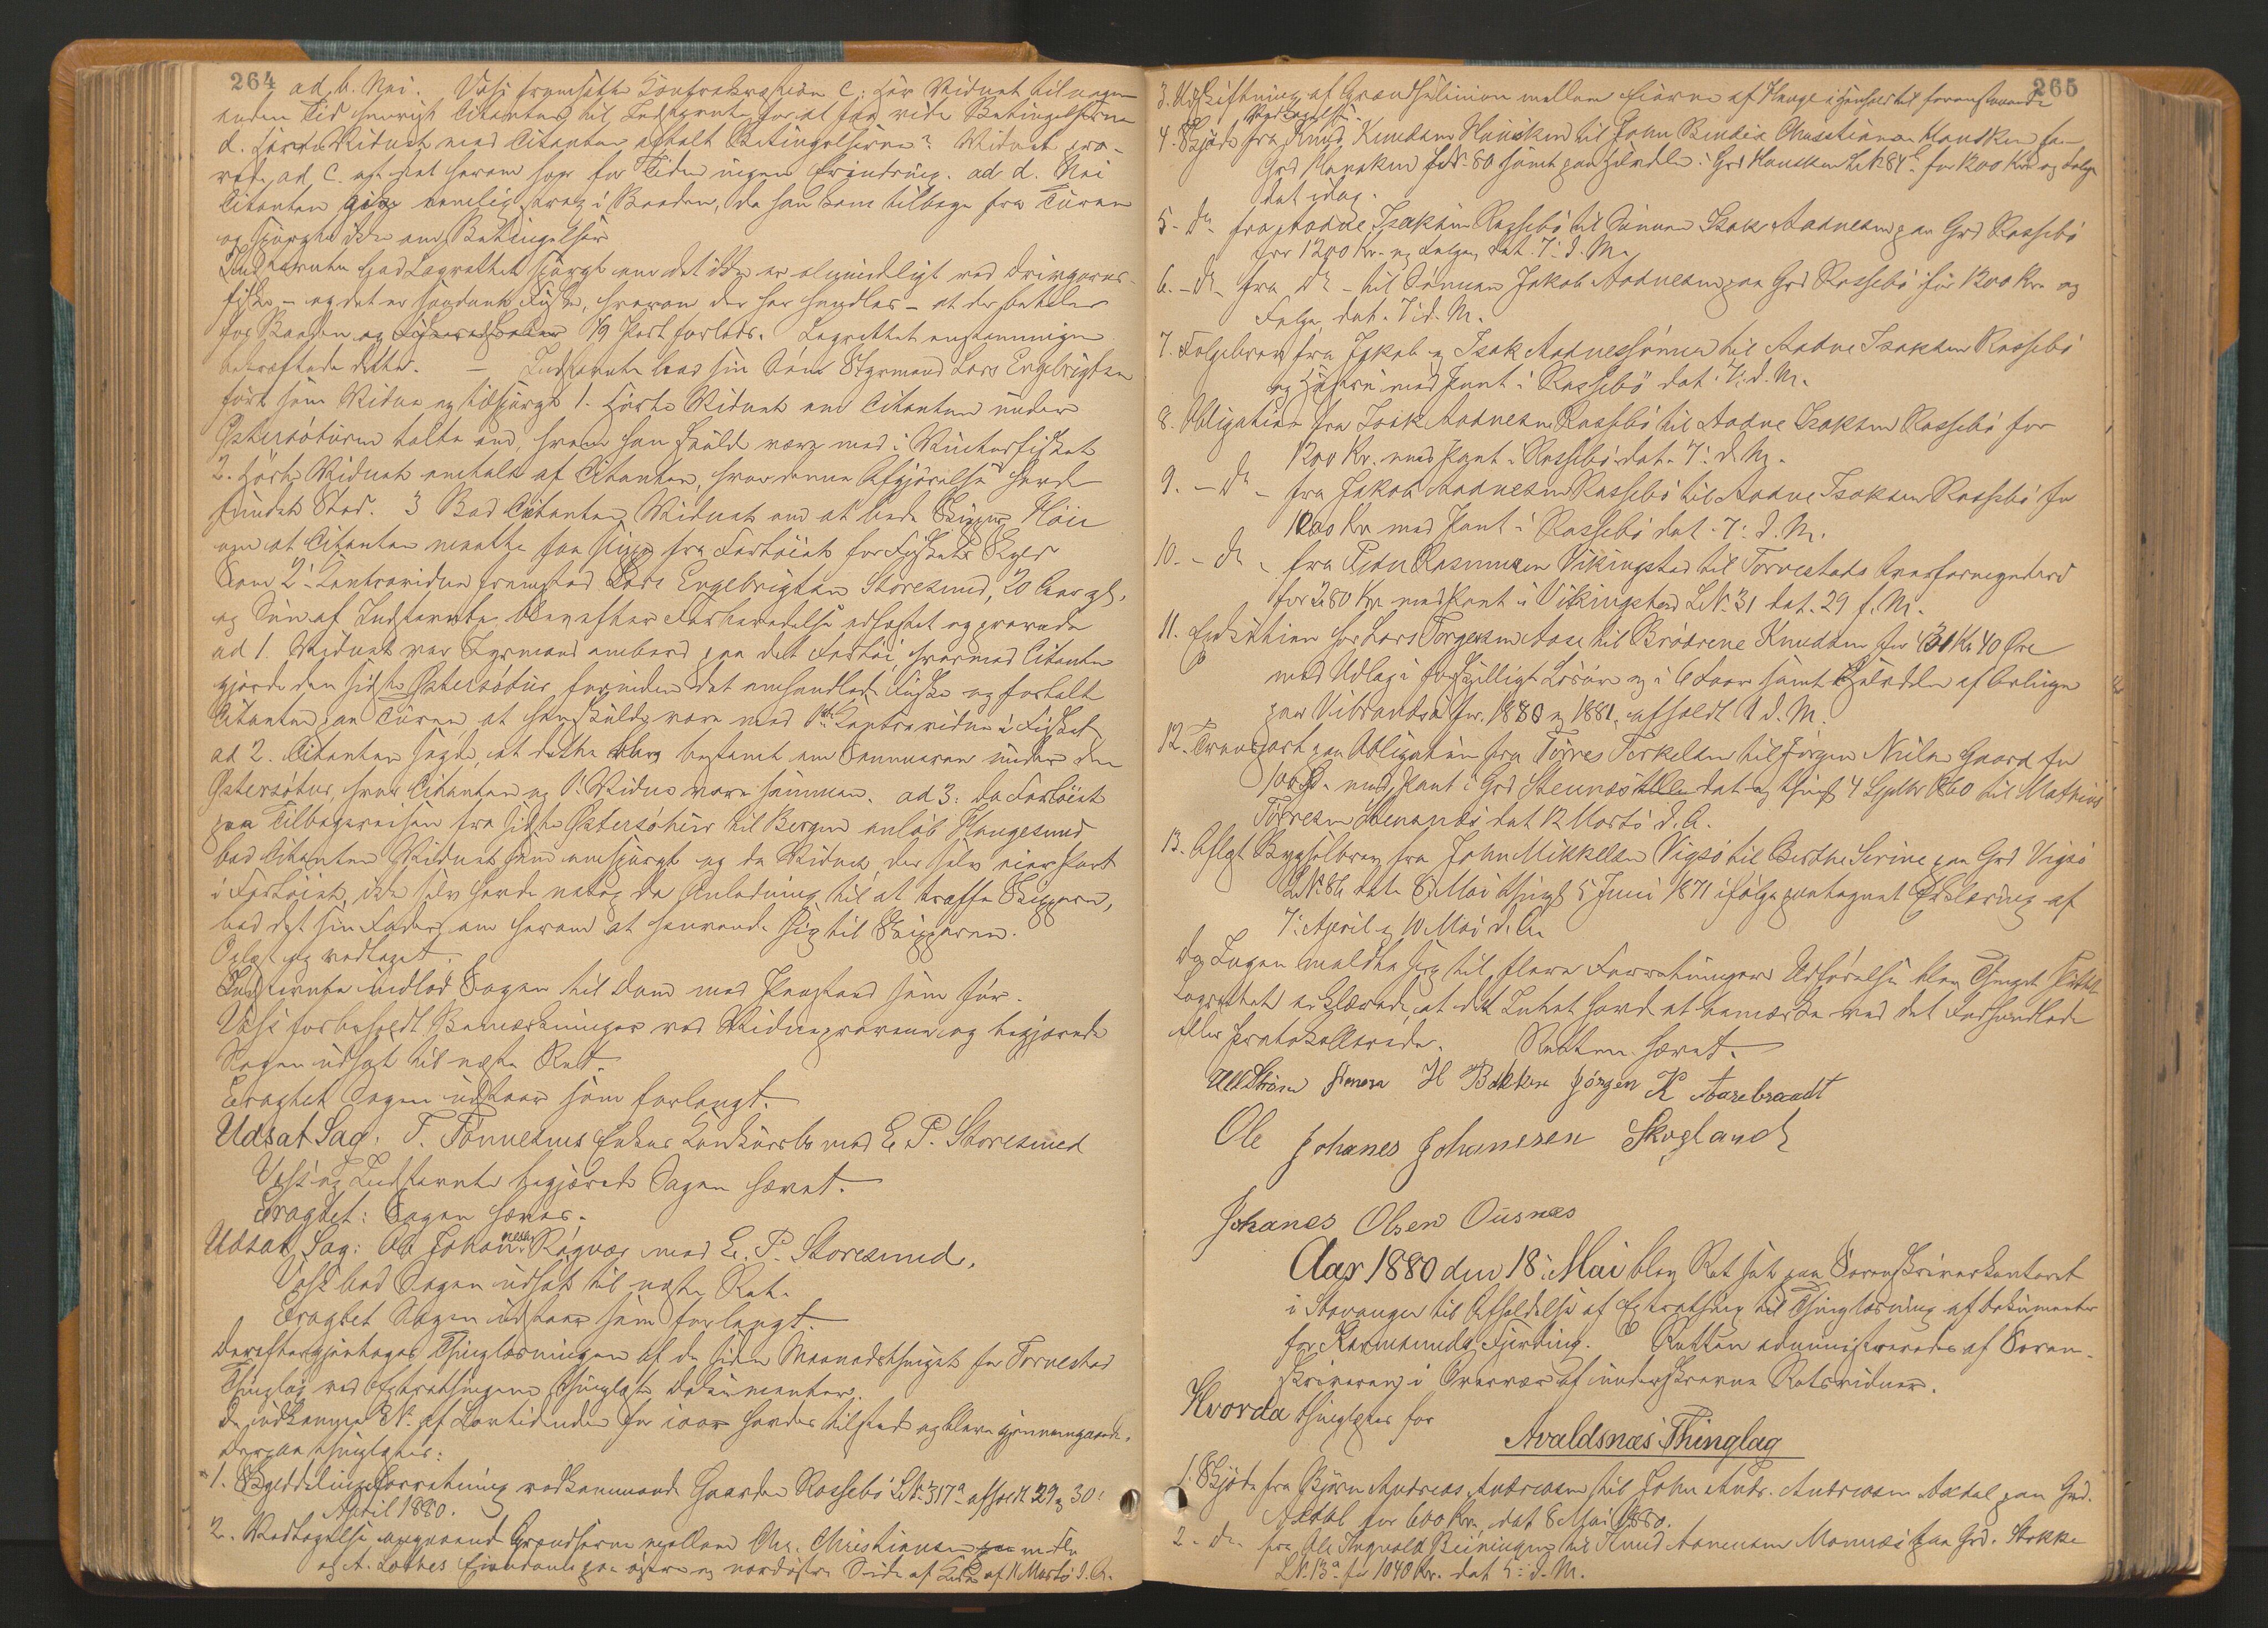 264
ad b. Nei. Vase fremsatte Contraqvæstion c: Har Vidnet til nogen
anden Tid henvist Citanten til Indstevnte for at faa vide Betingelserne
d. Hørte Vidnet med Citanten aftalt Betingelserne? Vidnet pro-
vede ad c. at det herom har for Tiden ingen Erindring. ad d. Nei
Citanten gik nemlig strax i Baaden, da han kom tilbage fra Turen
og spurgte ikke om Betingelser
Indstevnte bad Lagrettet spurgt om det ikke er almindeligt ved Drivgarns-
fiske, – og det er saadant Fiske, hvorom der her handles – at der betales
for Baaden og 1/9 Part forlods. Lagrettet enstemmigen
bekræftede dette. – Indstevnte bad sin Søn Styrmand Lars Engebrigtsen
ført som Vidne og tilspurgt 1. Hørte Vidnet om Citanten under
Østersøturen talte om, hvem han skulde være med i Vinterfisket
2. Hørte Vidnet omtale af Citanten, hvor denne Afgjørelse havde
fundet Sted. 3 Bad Citanten Vidnet om at bede Skipper Høie
om at Citanten maatte faa slippe fra Fartøiet for Fiskets Skyld
Som 2. Contravidne fremstod Lars Engebrigtsen Storesund, 20 Aar gl.
og Søn af Indstevnte. Blev efter Forberedelse edfæstet og provede
ad 1. Vidnet var Styrmand ombord paa det Fartøi, hvormed Citanten
gjorde den sidste Østersøtur forinden det omhandlede Fiske og fortalte
Citanten paa Turen, at han skulde være med 1ste Contravidne i Fisket
ad 2. Citanten sagde, at dette blev bestemt om Sommeren under den
Østersøtur, hvor Citanten og 1. Vidne vare sammen. ad 3: Da Fartøiet
paa Tilbagereisen fra sidste Østersøtur til Bergen anløb Haugesund
bad Citanten Vidnet som omspurgt og da Vidnet, der selv eier Part
i Fartøiet, ikke selv havde netop da Anledning til at træffe Skipperen,
bad det sin Fader om herom at henvende sig til Skipperen.
Oplæst og vedtaget.
Indstevnte indlod Sagen til Dom med Paastand som før.
Vase forbeholdt Bemærkninger ved Vidneprovene og begjærede
Sagen udsat til næste Ret.
Eragtet Sagen udstaar som forlangt.
Udsat Sag. T. Tønnesens Enkes Concursbo mod E. P. Storesund
Vase og Indstevnte begjærede Sagen hævet.
Eragtet: Sagen hæves.
Udsat Sag: Ole Johannesen Røgvær mod E. P. Storesund.
Vase bad Sagen udsat til næste Ret.
Eragtet Sagen udstaar som forlangt.
Derefter gjentoges Thinglæsningen af de siden Maanedsthinget for Torvestad
Thinglag ved Extrathingene thinglæste Dokumenter.
De udkomne No. af Lovtidenden for iaar havdes tilstede og bleve gjennemgaaede.
Derpaa thinglæstes:
1. Skylddelingsforretning vedkommende Gaarden Rossebø LNo. 317a afholdt 29 og 30:
April 1880.
2. Vedtagelse angaaende Grændserne mellem Chr. Christiansens
og A. Lothes Eiendomme paa øvre og nordøstre Side af af 11 Marts d. A.
265
3. Udskiftning af Grændselinien mellem Eierne af Hauge i Henhold til foranstaaende
Vedtagelse.
4. Skjøde fra Knud Knudsen Hausken til John Bendix Christiansen Hausken paa
Grd Hausken LNo. 80 samt paa i Grd Hausken LNo 84b for 1200 Kr. og Folge
dat idag.
5. – Do fra Aadne Isaksen Rossebø til Sønnen Isak Aadnesen paa Grd Rossebø
for 1200 Kr. og Folge, dat. 7: d. M.
6. – Do – fra Do – til Sønnen Jakob Aadnesen paa Grd Rossebø for 1200 Kr. og
Folge, dat. 7: d. M.
7. Folgebrev fra Jakob og Isak Aadnessønner til Aadne Isaksen Rossebø
og Hustru med Pant i Rossebø dat. 7: d. M.
8. Obligation fra Isak Aadnesen Rossebø til Aadne Isaksen Rossebø for
1200 Kr. med Pant i Rossebø dat. 7: d. M.
9. – Do – fra Jakob Aadnesen Rossebø til Aadne Isaksen Rossebø for
1200 Kr. med Pant i Rossebø dat. 7: d. M.
10. – Do – fra Peder Rasmussen Vikingstad til Torvestads Overformynderi
for 280 Kr. med Pant i Vikingstad LNo. 31 dat. 29 f. M.
11. Execution hos Lars Torgersen Aase til Brødrene Knudsen for 431 Kr 40 Øre
med Udlæg i forskjelligt Løsøre og i 6 Faar samt Halvdelen af Avlingen
paa Vibrandsø for 1880 og 1881, afholdt 1 d. M.
12. Transport paa Obligation fra Tørres Terkelsen til Jørgen Nilsen Gaard for
100 Spd. med Pant i Grd Stennæs dat. og thingl. 4 Septbr 1860 til Mathias
Tørresen Stennæs dat 12 Marts d. A.
13. Aflyst Bygselbrev fra John Mikkelsen Vigsø til Berthe Serine paa Grd Vigsø
LNo. 86 dat. 8 Mai thingl. 5 Juni 1871 ifølge paategnet Erklæring af
7. April og 10 Mai d. A.
Da Ingen meldte sig til flere Forretningers Udførelse blev Thinget sluttet.
Lagrettet erklærede, at det Intet havde at bemærke ved det Forhandlede
eller Protokollerede. Retten hævet.
H Bakken Jörgen K Aarebraadt
Ole Johanes Johannesen Skogland
Johanes Olsen Ousnes
Aar 1880 den 18. Mai blev Ret sat paa Sorenskriverkontoret
i Stavanger til Afholdelse af Extrathing til Thinglæsning af Dokumenter
for Karmsunds Fjerding. Retten administreredes af Soren-
skriveren i Overvær af underskrevne Retsvidner.
Hvorda thinglæstes for
Avaldsnæs Thinglag
1. Skjøde fra Bjørn Andreas Andreasen til John Andr. Andreasen Axdal paa Grd.
Axdal for 600 Kr., dat 8 Mai 1880.
2. – Do. fra Ole Ingvald Beiningen til Knud Aanensen Monnæs paa Grd. Stokke
LNo. 13a for 1040 Kr. dat 5: d. M.